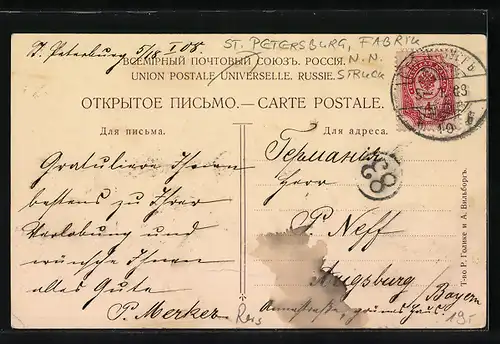 St. Petersburg 5/18 I 08.
ST. PETERSBURG, FABRIK
N. N.
STRUCK
ВСЕМІРНЫЙ ПОЧТОВЫЙ СОЮЗЪ. РОССІЯ.
UNION POSTALE UNIVERSELLE. RUSSIE.
ОТКРЫТОЕ ПИСЬМО. — CARTE POSTALE.
Для письма.
Для адреса.
Gratuliere Ihnen
bestens zu Ihrer
Verlobung und
wünsche Ihnen
alles Gute
P. Merker
Германія
Herr
P. Neff
Augsburg
Bayern
Annastraße, grünes Haus
83
Т-во Р. Голике и А. Вильборгъ.
Reis
19,-